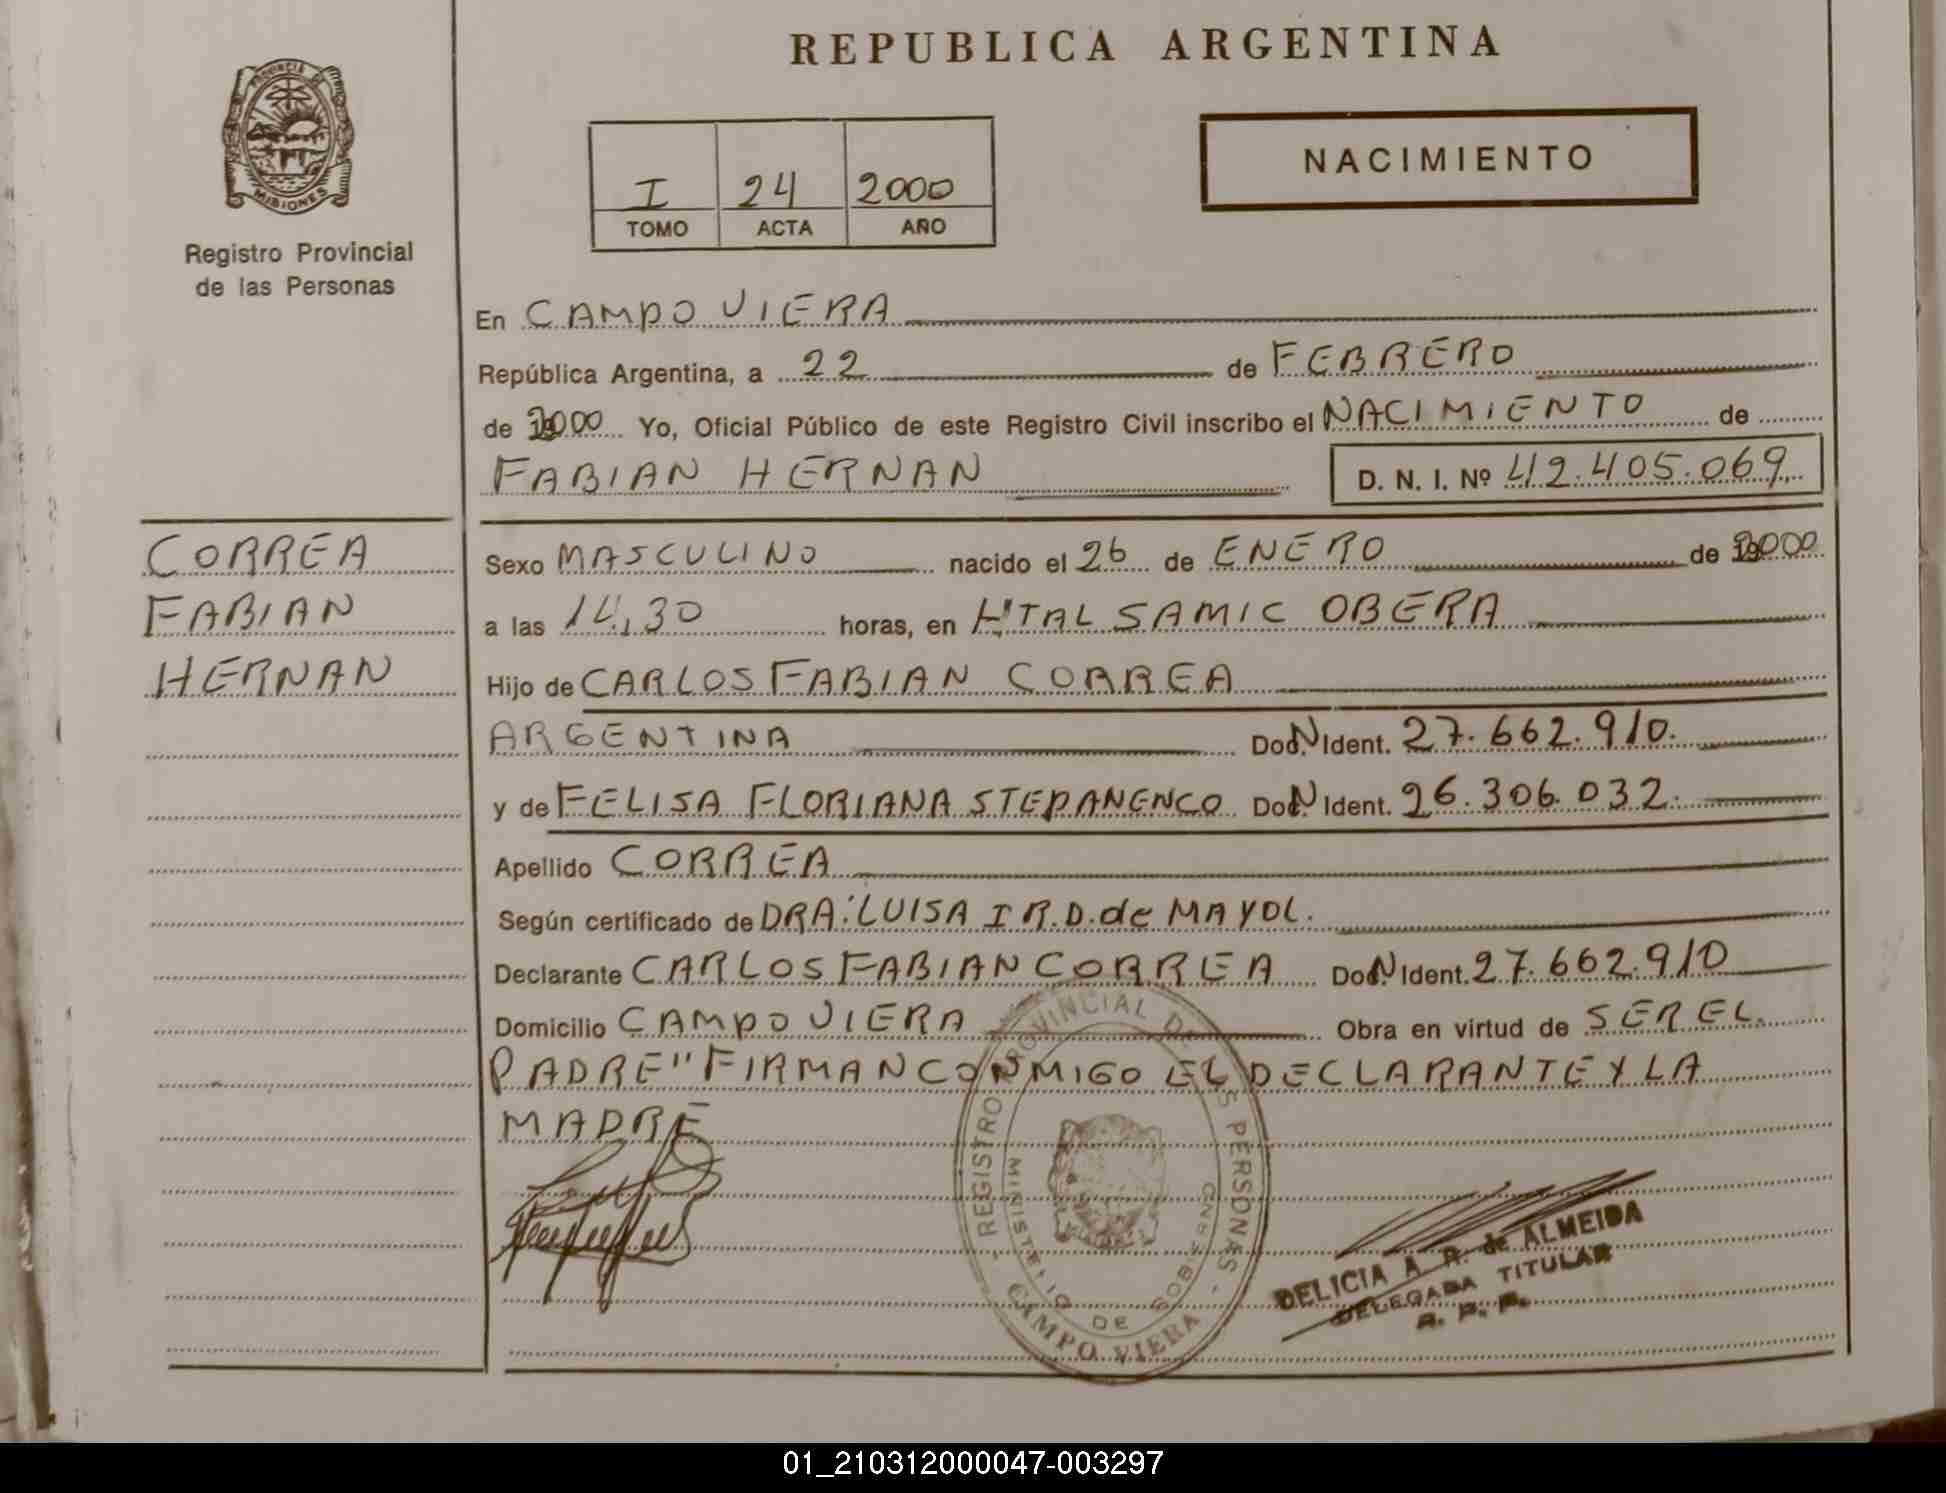 REPUBLICA ARGENTINA
PROVINCIA DE
MISIONES
Registro Provincial
de las Personas
I 24 2000
TOMO ACTA AÑO
NACIMIENTO
En CAMPO VIERA
República Argentina, a 22 de FEBRERO
de 2000 Yo, Oficial Público de este Registro Civil inscribo el NACIMIENTO de
FABIAN HERNAN D. N. I. Nº 42.405.069
CORREA
FABIAN
HERNAN
Sexo MASCULINO nacido el 26 de ENERO de 2000
a las 14,30 horas, en H'TAL SAMIC OBERA
Hijo de CARLOS FABIAN CORREA
ARGENTINA Doc. N Ident. 27.662.910.
y de FELISA FLORIANA STEPANENCO Doc. N Ident. 26.306.032.
Apellido CORREA
Según certificado de DRA: LUISA I R.D. de MAYOL.
Declarante CARLOS FABIAN CORREA Doc. N Ident. 27.662.910
Domicilio CAMPO VIERA Obra en virtud de SER EL
PADRE" FIRMAN CONMIGO EL DECLARANTE Y LA
MADRE
REGISTRO PROVINCIAL DE LAS PERSONAS
MINISTERIO DE GOBIERNO
CAMPO VIERA
DELICIA A. R. de ALMEIDA
DELEGADA TITULAR
R. P. P.
01_210312000047-003297